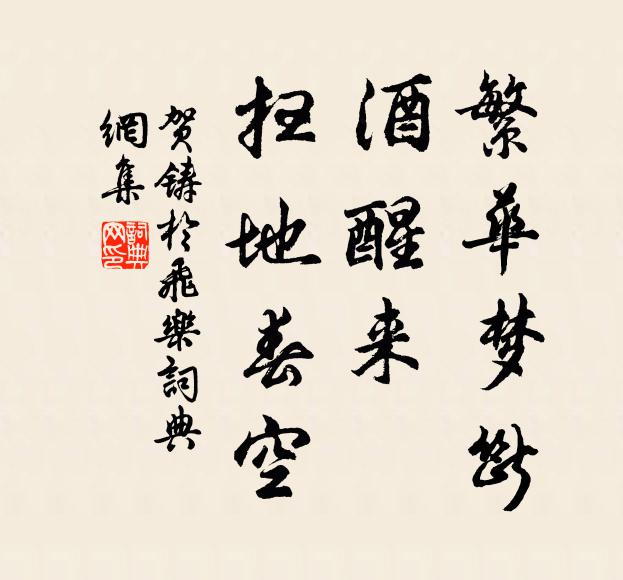 繁華梦斷
酒醒来
扫地春空
贺鋳於飛樂詞典
網集
詞典
网印